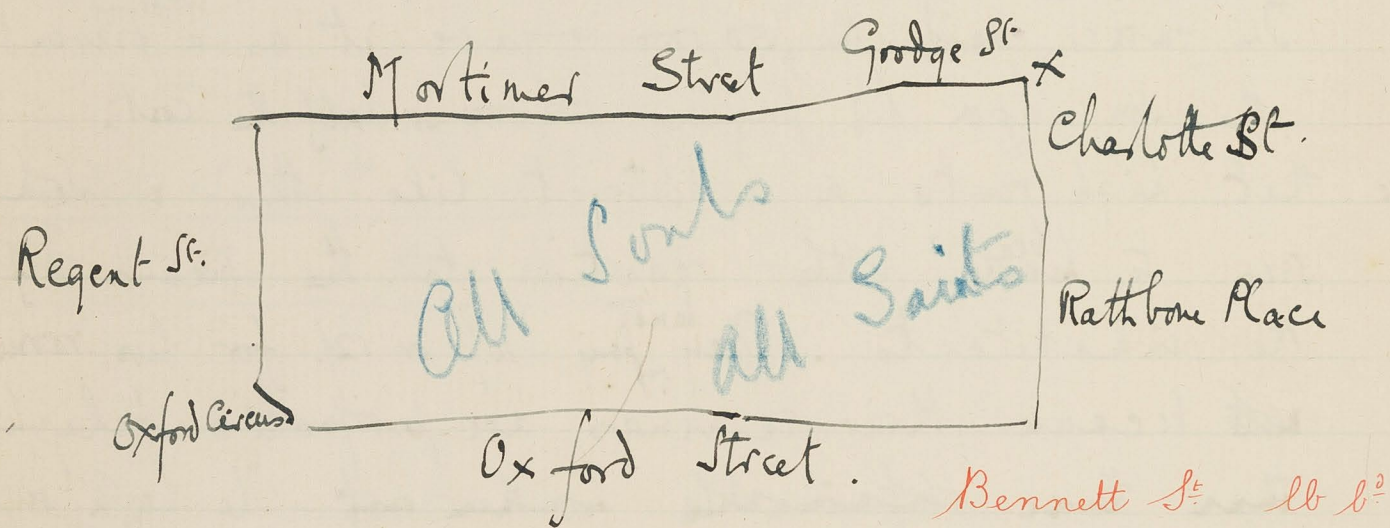 Mortimer Street Goodge St. x
Charlotte St.
All Souls
Regent St.
All Saints
Rathbone Place
Oxford Circus
Oxford Street.
Bennett St